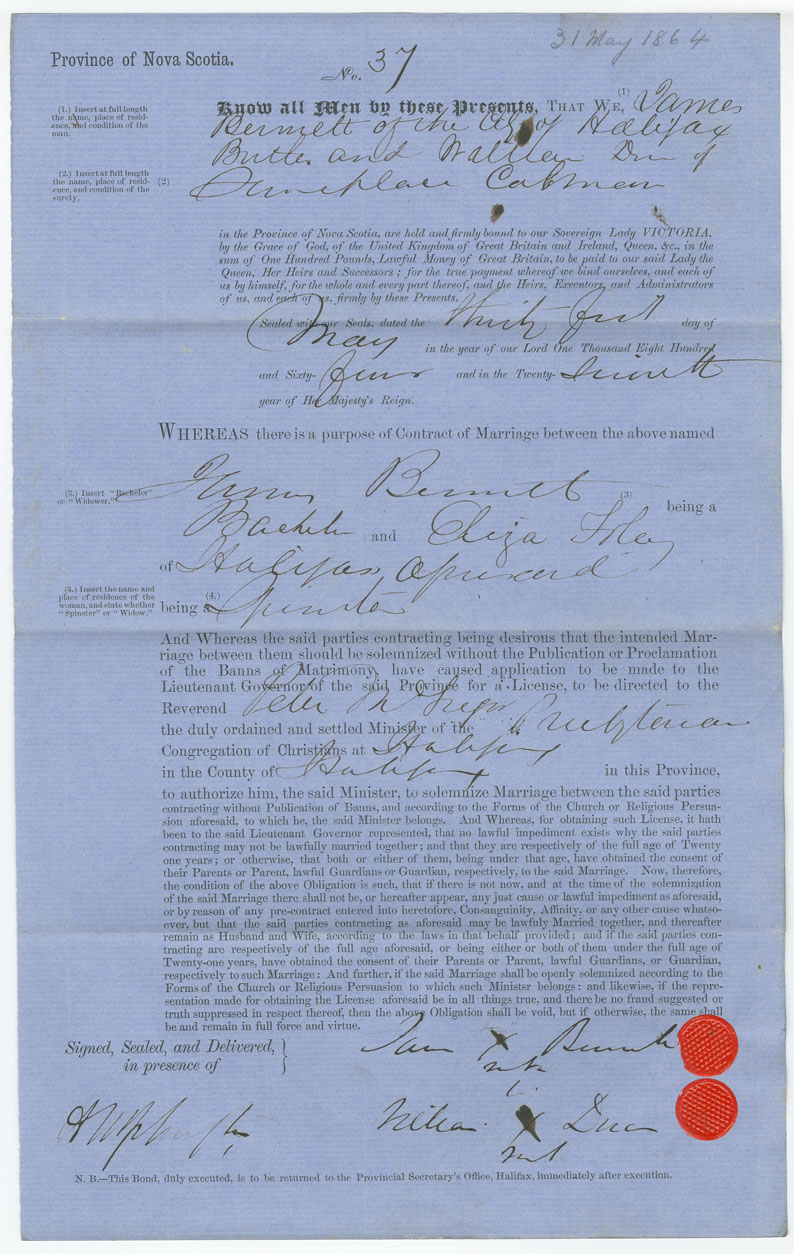 31 May 1864
Province of Nova Scotia.
No. 37
(1.) Insert at full length
the name, place of resid-
ence, and condition of the
man.
Know all Men by these Presents, THAT WE, (1) James
Bennett of the City of Halifax
Butler and William Dun of
(2.) Insert at full length
the name, place of resid-
ence, and condition of the
surety.
(2) Same place Cabman
in the Province of Nova Scotia, are held and firmly bound to our Sovereign Lady VICTORIA,
by the Grace of God, of the United Kingdom of Great Britain and Ireland, Queen, &c., in the
sum of One Hundred Pounds, Lawful Money of Great Britain, to be paid to our said Lady the
Queen, Her Heirs and Successors; for the true payment whereof we bind ourselves, and each of
us by himself, for the whole and every part thereof, and the Heirs, Executors, and Administrators
of us, and each of us, firmly by these Presents.
Sealed with our Seals, dated the Thirty first day of
May in the year of our Lord One Thousand Eight Hundred
and Sixty-four and in the Twenty-seventh
year of Her Majesty's Reign.
WHEREAS there is a purpose of Contract of Marriage between the above named
(3.) Insert "Bachelor"
or "Widower."
James Bennett (3) being a
Bachelor and Eliza Foley
of Halifax aforesaid
(4.) Insert the name and
place of residence of the
woman, and state whether
"Spinster" or "Widow."
being a (4.) Spinster
And Whereas the said parties contracting being desirous that the intended Mar-
riage between them should be solemnized without the Publication or Proclamation
of the Banns of Matrimony, have caused application to be made to the
Lieutenant Governor of the said Province for a License, to be directed to the
Reverend Peter McGregor
the duly ordained and settled Minister of the Presbyterian
Congregation of Christians at Halifax
in the County of Halifax in this Province,
to authorize him, the said Minister, to solemnize Marriage between the said parties
contracting without Publication of Banns, and according to the Forms of the Church or Religious Persua-
sion aforesaid, to which he, the said Minister belongs. And Whereas, for obtaining such License, it hath
been to the said Lieutenant Governor represented, that no lawful impediment exists why the said parties
contracting may not be lawfully married together; and that they are respectively of the full age of Twenty
one years; or otherwise, that both or either of them, being under that age, have obtained the consent of
their Parents or Parent, lawful Guardians or Guardian, respectively, to the said Marriage. Now, therefore,
the condition of the above Obligation is such, that if there is not now, and at the time of the solemnization
of the said Marriage there shall not be, or hereafter appear, any just cause or lawful impediment as aforesaid,
or by reason of any pre-contract entered into heretofore, Consanguinity, Affinity, or any other cause whatso-
ever, but that the said parties contracting as aforesaid may be lawfuly Married together, and thereafter
remain as Husband and Wife, according to the laws in that behalf provided; and if the said parties con-
tracting are respectively of the full age aforesaid, or being either or both of them under the full age of
Twenty-one years, have obtained the consent of their Parents or Parent, lawful Guardians, or Guardian,
respectively to such Marriage: And further, if the said Marriage shall be openly solemnized according to the
Forms of the Church or Religious Persuasion to which such Ministsr belongs: and likewise, if the repre-
sentation made for obtaining the License aforesaid be in all things true, and there be no fraud suggested or
truth suppressed in respect thereof, then the above Obligation shall be void, but if otherwise, the same shall
be and remain in full force and virtue.
Signed, Sealed, and Delivered,
in presence of
James X Bennett
mark
William X Dun
mark
N. B.—This Bond, duly executed, is to be returned to the Provincial Secretary's Office, Halifax, immediately after execution.